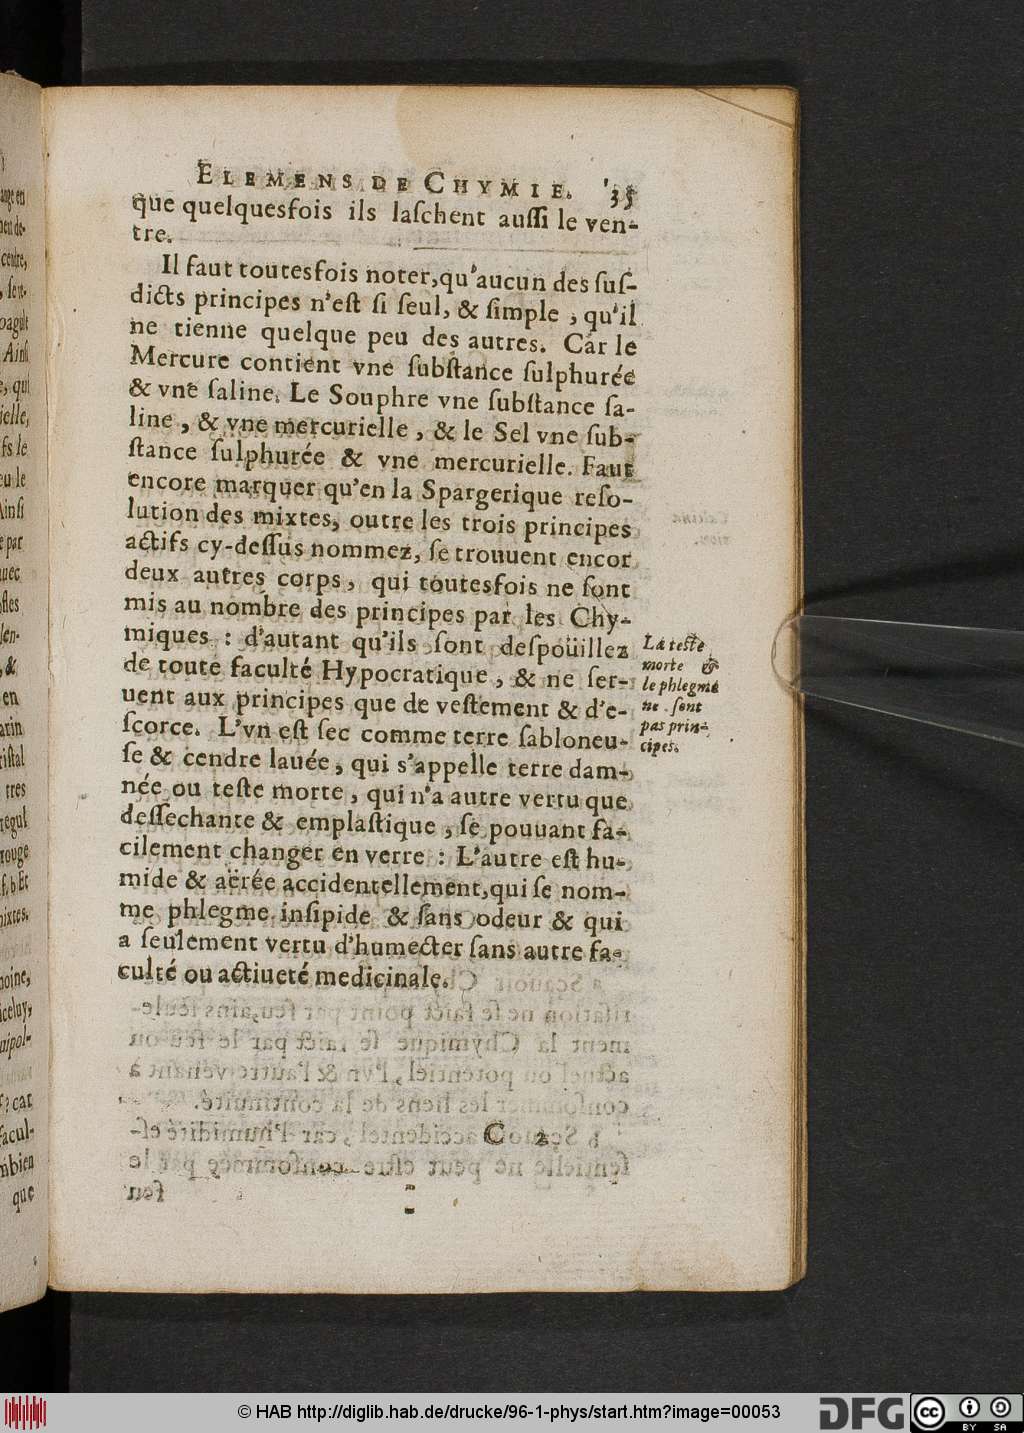 ELEMENS DE CHYMIE. 35
que quelquesfois ils laſchent auſſi le ven-
tre.
Il faut toutesfois noter, qu'aucun des ſuſ-
dicts principes n'eſt ſi ſeul, & ſimple, qu'il
ne tienne quelque peu des autres. Car le
Mercure contient vne ſubſtance ſulphurée
& vne ſaline. Le Souphre vne ſubſtance ſa-
line, & vne mercurielle, & le Sel vne ſub-
ſtance ſulphurée & vne mercurielle. Faut
encore marquer qu'en la Spargerique reſo-
lution des mixtes, outre les trois principes
actifs cy-deſſus nommez, ſe trouuent encor
deux autres corps, qui toutesfois ne ſont
mis au nombre des principes par les Chy-
miques : d'autant qu'ils ſont deſpoüillez
de toute faculté Hypocratique, & ne ſer-
uent aux principes que de veſtement & d'e-
ſcorce. L'vn eſt ſec comme terre ſabloneu-
ſe & cendre lauée, qui s'appelle terre dam-
née ou teſte morte, qui n'a autre vertu que
deſſechante & emplaſtique, ſe pouuant fa-
cilement changer en verre : L'autre eſt hu-
mide & aërée accidentellement, qui ſe nom-
me phlegme inſipide & ſans odeur & qui
a ſeulement vertu d'humecter ſans autre fa-
culté ou actiueté medicinale.
La teſte
morte &
le phlegme
ne ſont
pas prin-
cipes.
C 2
© HAB http://diglib.hab.de/drucke/96-1-phys/start.htm?image=00053
DFG
cc
BY SA